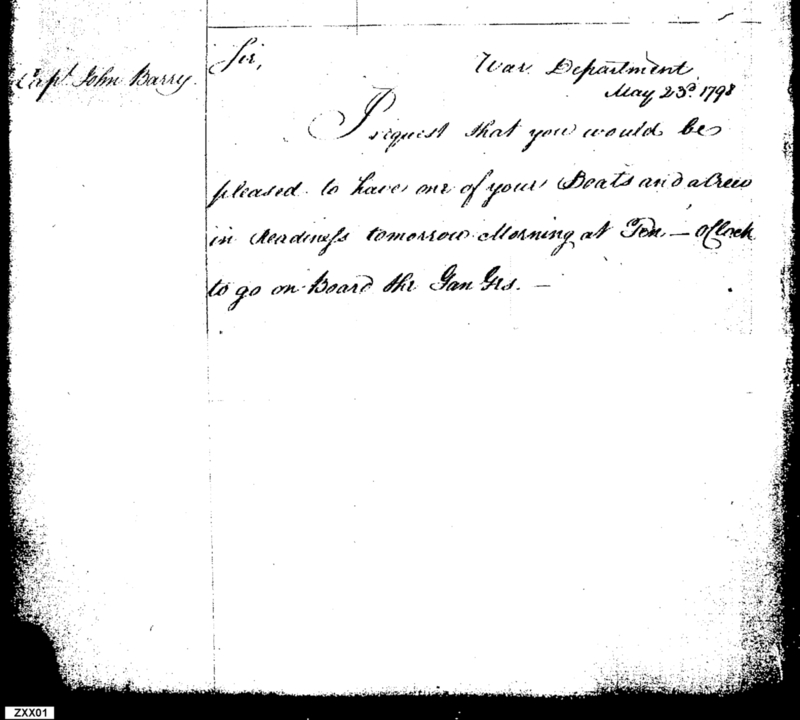 Capt. John Barry.
Sir,
War Department
May 23d. 1798
I request that you would be
pleased to have one of your Boats and a Crew
in Readiness tomorrow Morning at Ten — oClock
to go on Board the Gan Ges. —
ZXX01